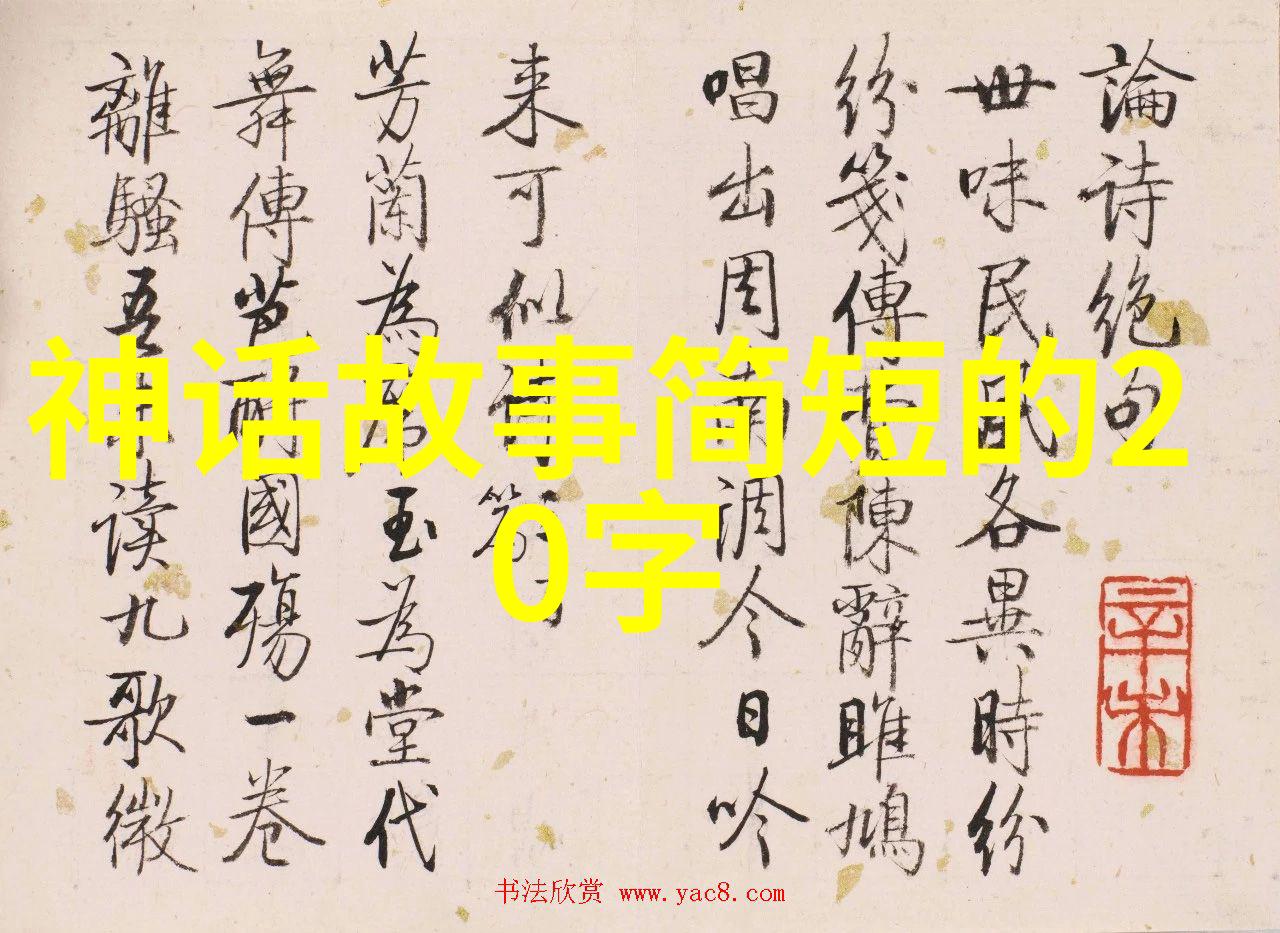 論诗绝句
世味民氓各異時紛
紛箋傳
陳辭雎鳩
唱出周南调今日吟
来可似
芳蘭為
玉為堂代
舞傳芭
國殤一卷
離騷吾
读九歌微
神话故事简短的2
0字
书法欣赏 www.yac8.com